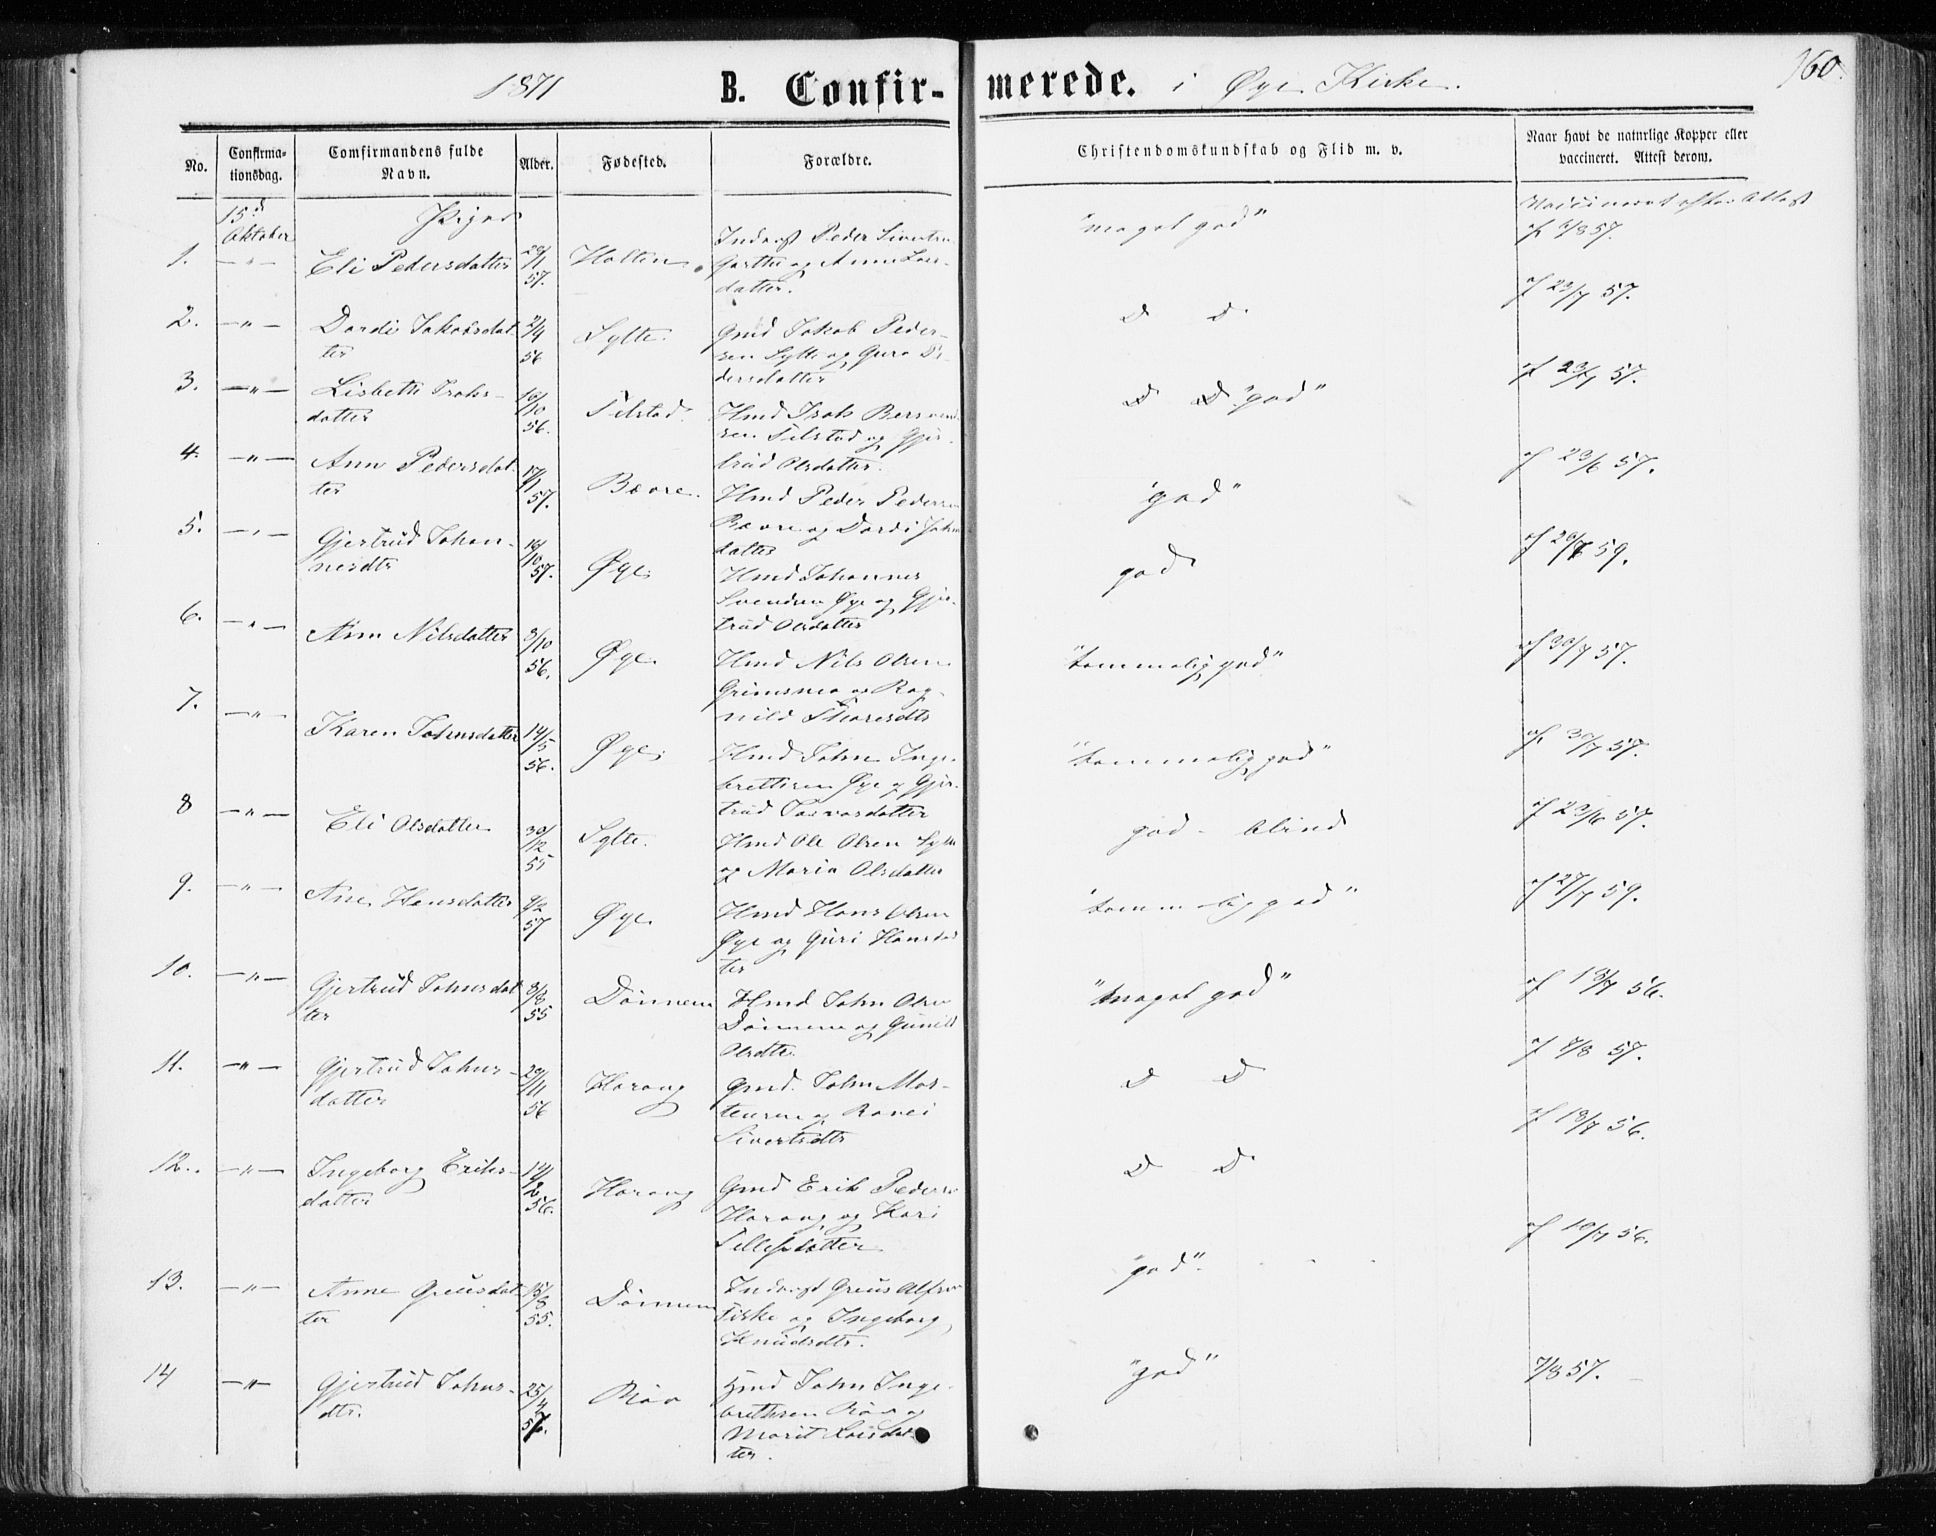 1871 B. Confirmerede. i Øye Kirke. 160.
No. Confirmationsdag. Comfirmandens fulde Navn. Alder. Fødested. Forældre. Christendomskundskab og Flid m. v. Naar havt de naturlige Kopper eller vaccineret. Attest derom.
15d Oktober Piger
1. —"— Eli Pedersdatter 57. Holten Peder og Anne datter. "meget god" Vaccineret efter Attest af 7/8 57.
2. —"— Dordi Jakobsdatter 2/4 56 Sylte. Gmd Jakob Pedersen Sylte og Guro Pedersdatter D D. af 23/7 57.
3. —"— Lisbeth Isaksdatter 16/10 56. Hmd Isak og Gjertrud Olsdatter. D D "god" af 23/7 57.
4. —"— Ann Pedersdatter 57. Bævre. Hmd Peder Pedersen Bævre og Dordi datter "god" af 23/6 57.
5. —"— Gjertrud Johannesdtr 16/10 57. Øye. Hmd Johannes Svendsen Øye og Gjertrud Olsdatter god af 59.
6. —"— Ann Nilsdatter 3/10 56. Øye. Hmd Nils Olsen og "temmelig god" af 30/7 57.
7. —"— Karen Johnsdatter 14/5 56. Øye. Hmd John Ingebrettsen Øye og Gjertrud "temmelig god" af 30/7 57.
8 —"— Eli Olsdatter 30/12 55 Sylte. Hmd Ole Olsen Sylte og Maria Olsdatter god - blind af 23/6 57.
9. —"— Ane Hansdatter 9/2 57 Øye Hmd Hans Olsen Øye og Guri Hansdatter "temmelig god" af 27/7 59.
10. —"— Gjertrud Johnsdatter 8/8 55 Dønnem Hmd John Olsen Dønnem og Gunild Olsdtr. "meget god" af 13/7 56.
11. —"— Gjertrud Johnsdatter 29/11 56 Harang Gmd. John Mortensen og Sivertsdtr D D af 7/8 57.
12. —"— Ingeborg Eriksdatter 56. Harang Gmd Erik Pedersen Harang og Kari D D af 13/7 56.
13. —"— Anne datter 55. Dønnem og Ingeborg Knudsdtr. "god". af 10/7 56.
14 —"— Gjertrud Johnsdtr. 25/4 Hmd John Ingebrethsen og Marit Larsdatter. "god" 7/8 57.